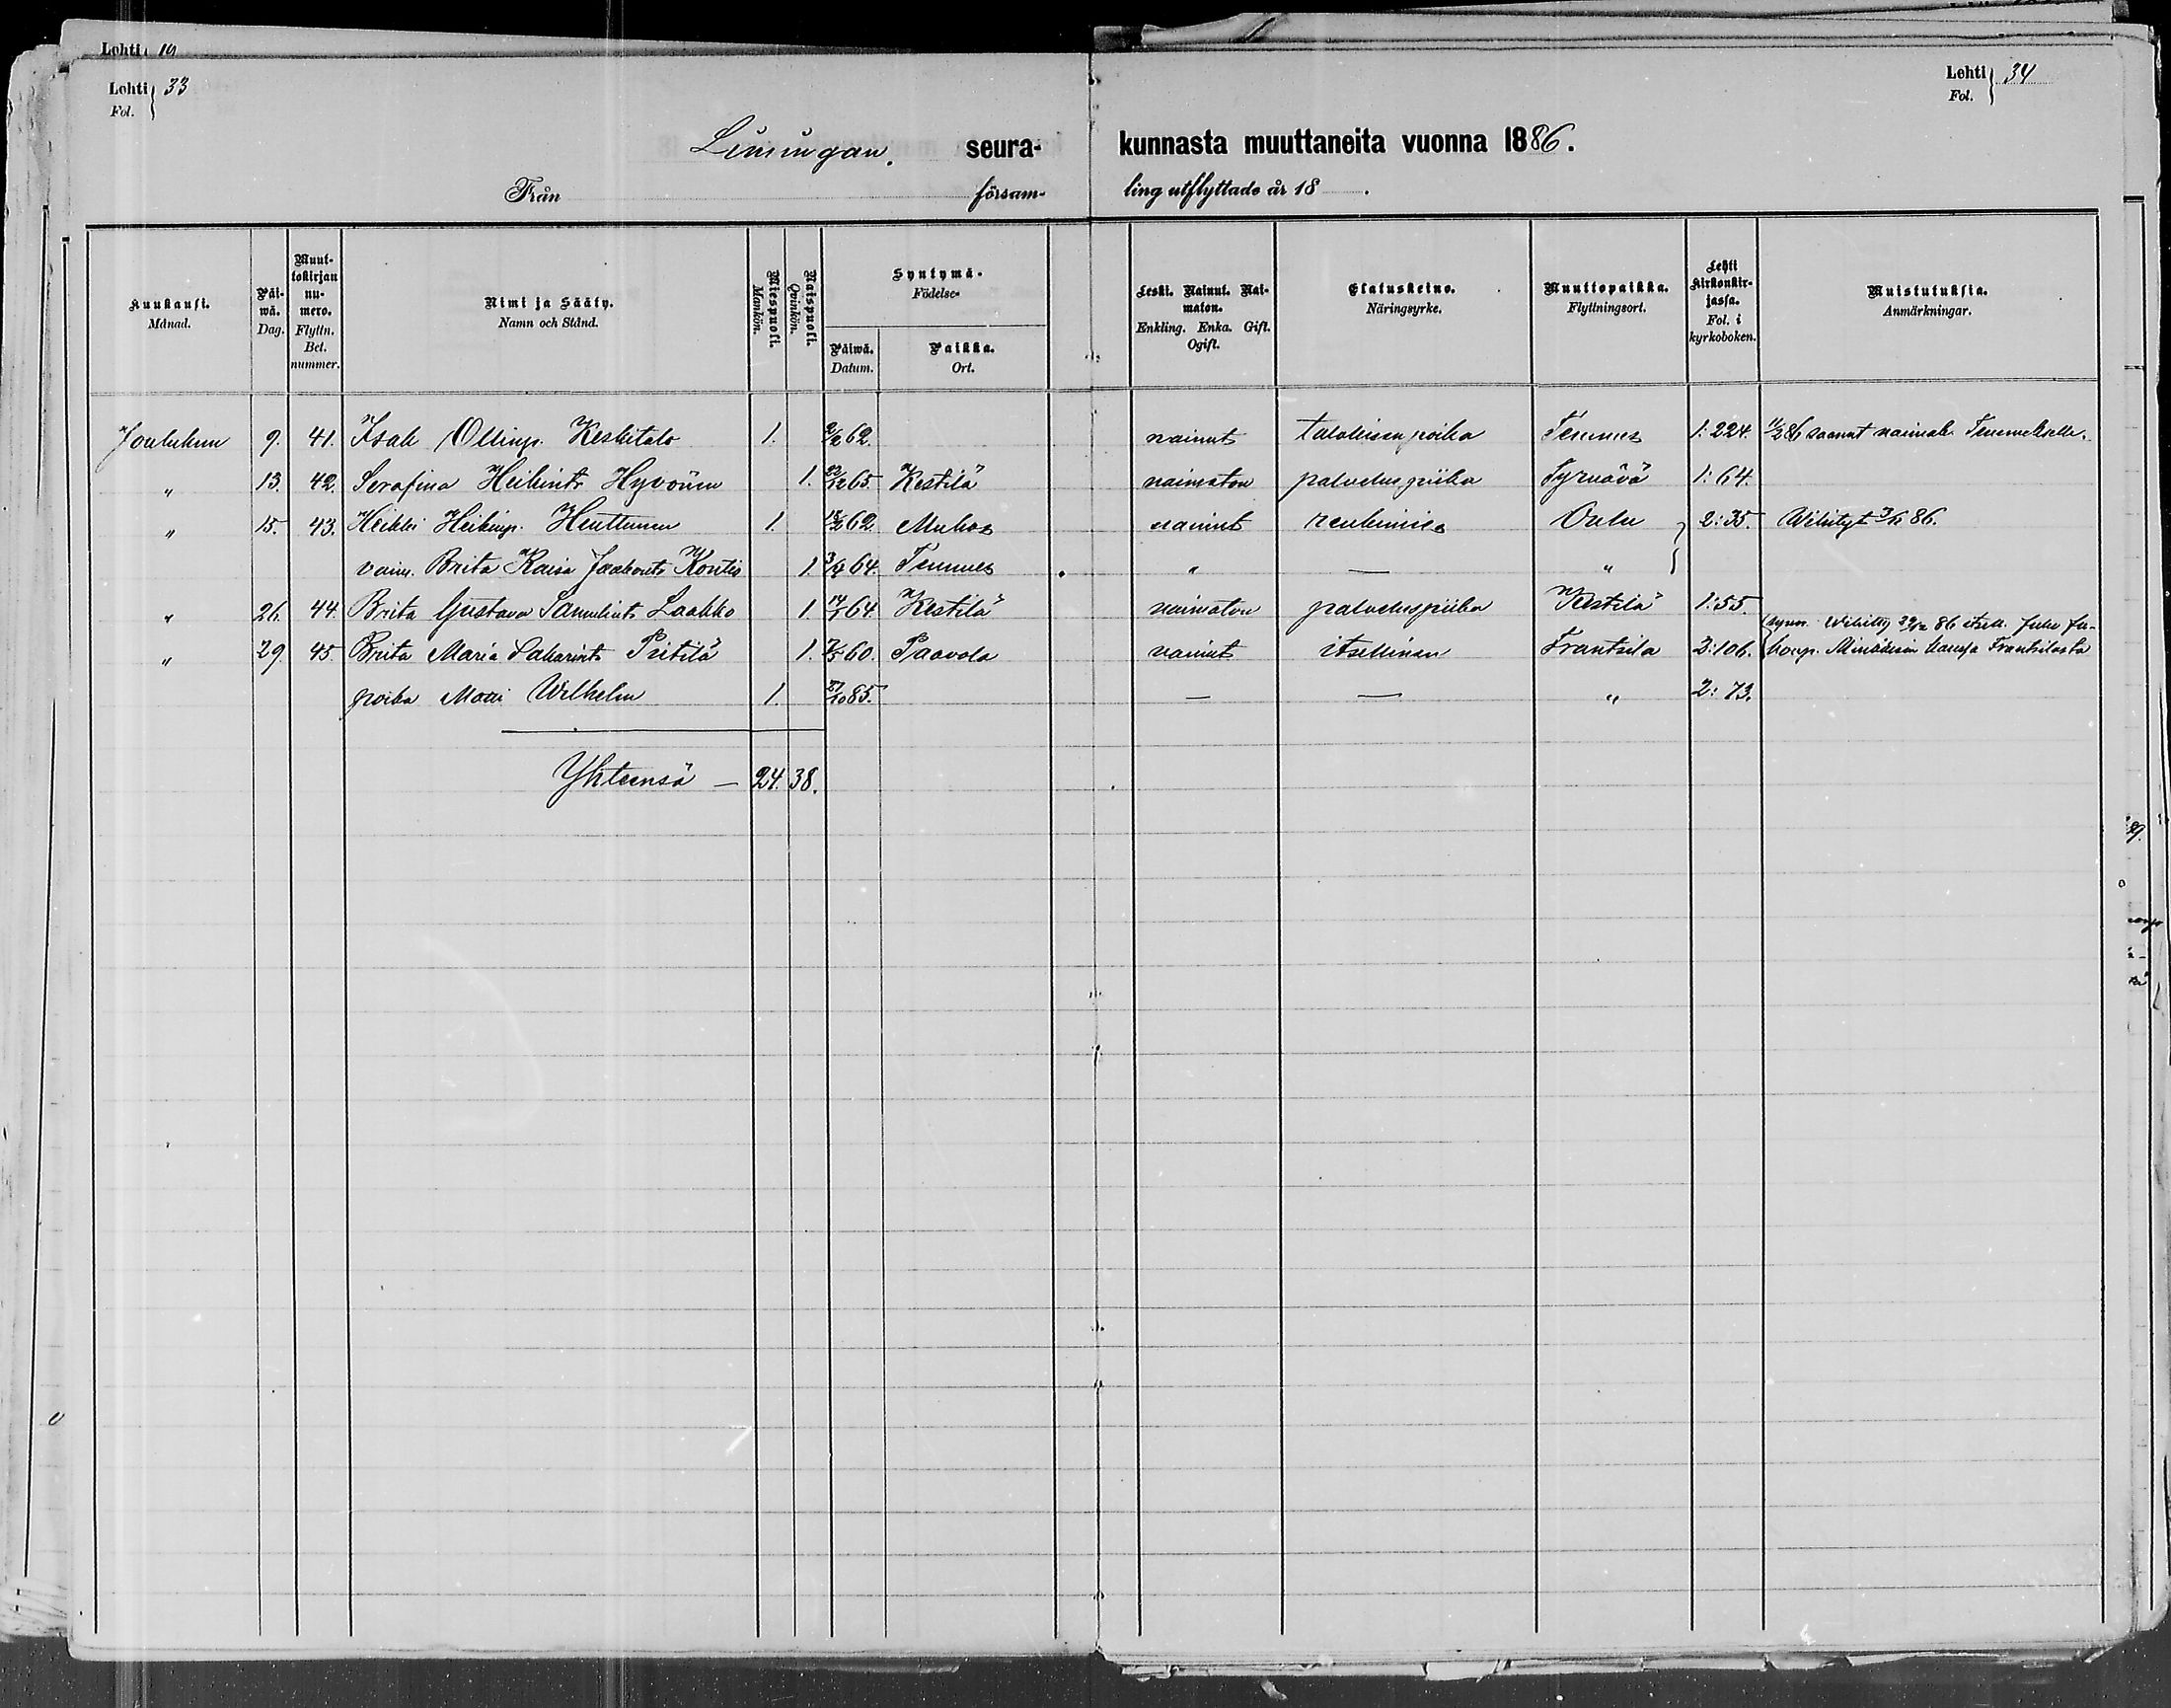 Lehti 19
Lehti Fol. 33
Lehti Fol. 34
Limingan seura- kunnasta muuttaneita vuonna 1886.
Från försam- ling utflyttade år 18 .
Kuukausi. Månad.
Päi- wä. Dag.
Muut- tokirjan nu- mero. Flyttn. Bet. nummer.
Nimi ja Sääty. Namn och Stånd.
Miespuoli. Mankön.
Naispuoli. Qvinkön.
Syntymä- Födelse-
Päiwä. Datum.
Paikka. Ort.
Leski. Nainut. Nai- maton. Enkling. Enka. Gift. Ogift.
Elatuskeino. Näringsyrke.
Muuttopaikka. Flyttningsort.
Lehti kirkonkir- jassa. Fol. i kyrkoboken.
Muistutuksia. Anmärkningar.
Joulukuu 9. 41. Isak Ollinp. Keskitalo 1. 2/2 62. nainut talollisen poika Temmes 1:224. 11/2 86 saanut Temmekselle.
" 13. 42. Serafina Heikint. Hyvönen 1. 22/12 65. Kestilä naimaton palveluspiika Tyrnävä 1:64.
" 15. 43. Heikki Heikinp. Henttunen 1. 15/2 62 Muhos nainut renkimies Oulu 2:35. Wihityt 3/11 86.
vaim. Brita Kaisa Jaakont. Kontio 1. 3/4 64. Temmes " — "
" 26. 44. Brita Gustava Samulint. Laakko 1. 14/1 64. Kestilä naimaton palveluspiika Kestilä 1:55.
" 29. 45. Brita Maria Sakarint. Pietilä 1. 7/5 60. Paavola nainut itsellinen Frantsila 2:106. Wihitty 29/12 86 itsell. Juho Ju- honp. kanssa Frantsilasta
poika Matti Wilhelm 1. 27/10 85. — — " 2:73.
Yhteensä — 24. 38.